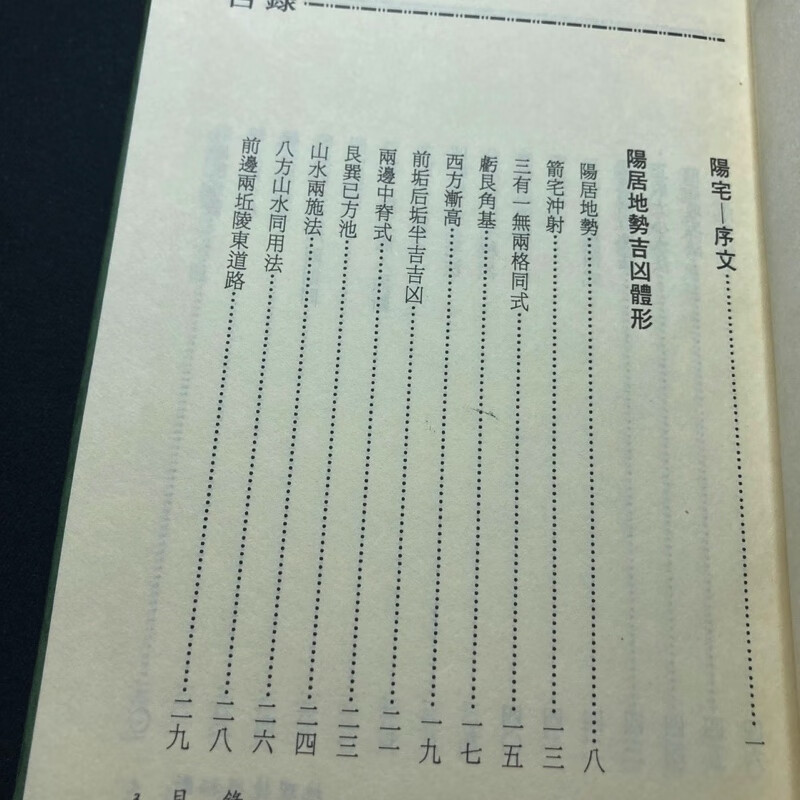 目錄
陽宅—序文……一
陽居地勢吉凶體形
陽居地勢……八
箭宅沖射……一三
三有一無兩格同式……一五
虧艮角基……一七
西方漸高……一九
前垢后垢半吉吉凶……二一
兩邊中脊式……二三
艮巽巳方池……二四
山水兩施法……二六
八方山水同用法……二八
前邊兩坵陵東道路……二九
3 目錄